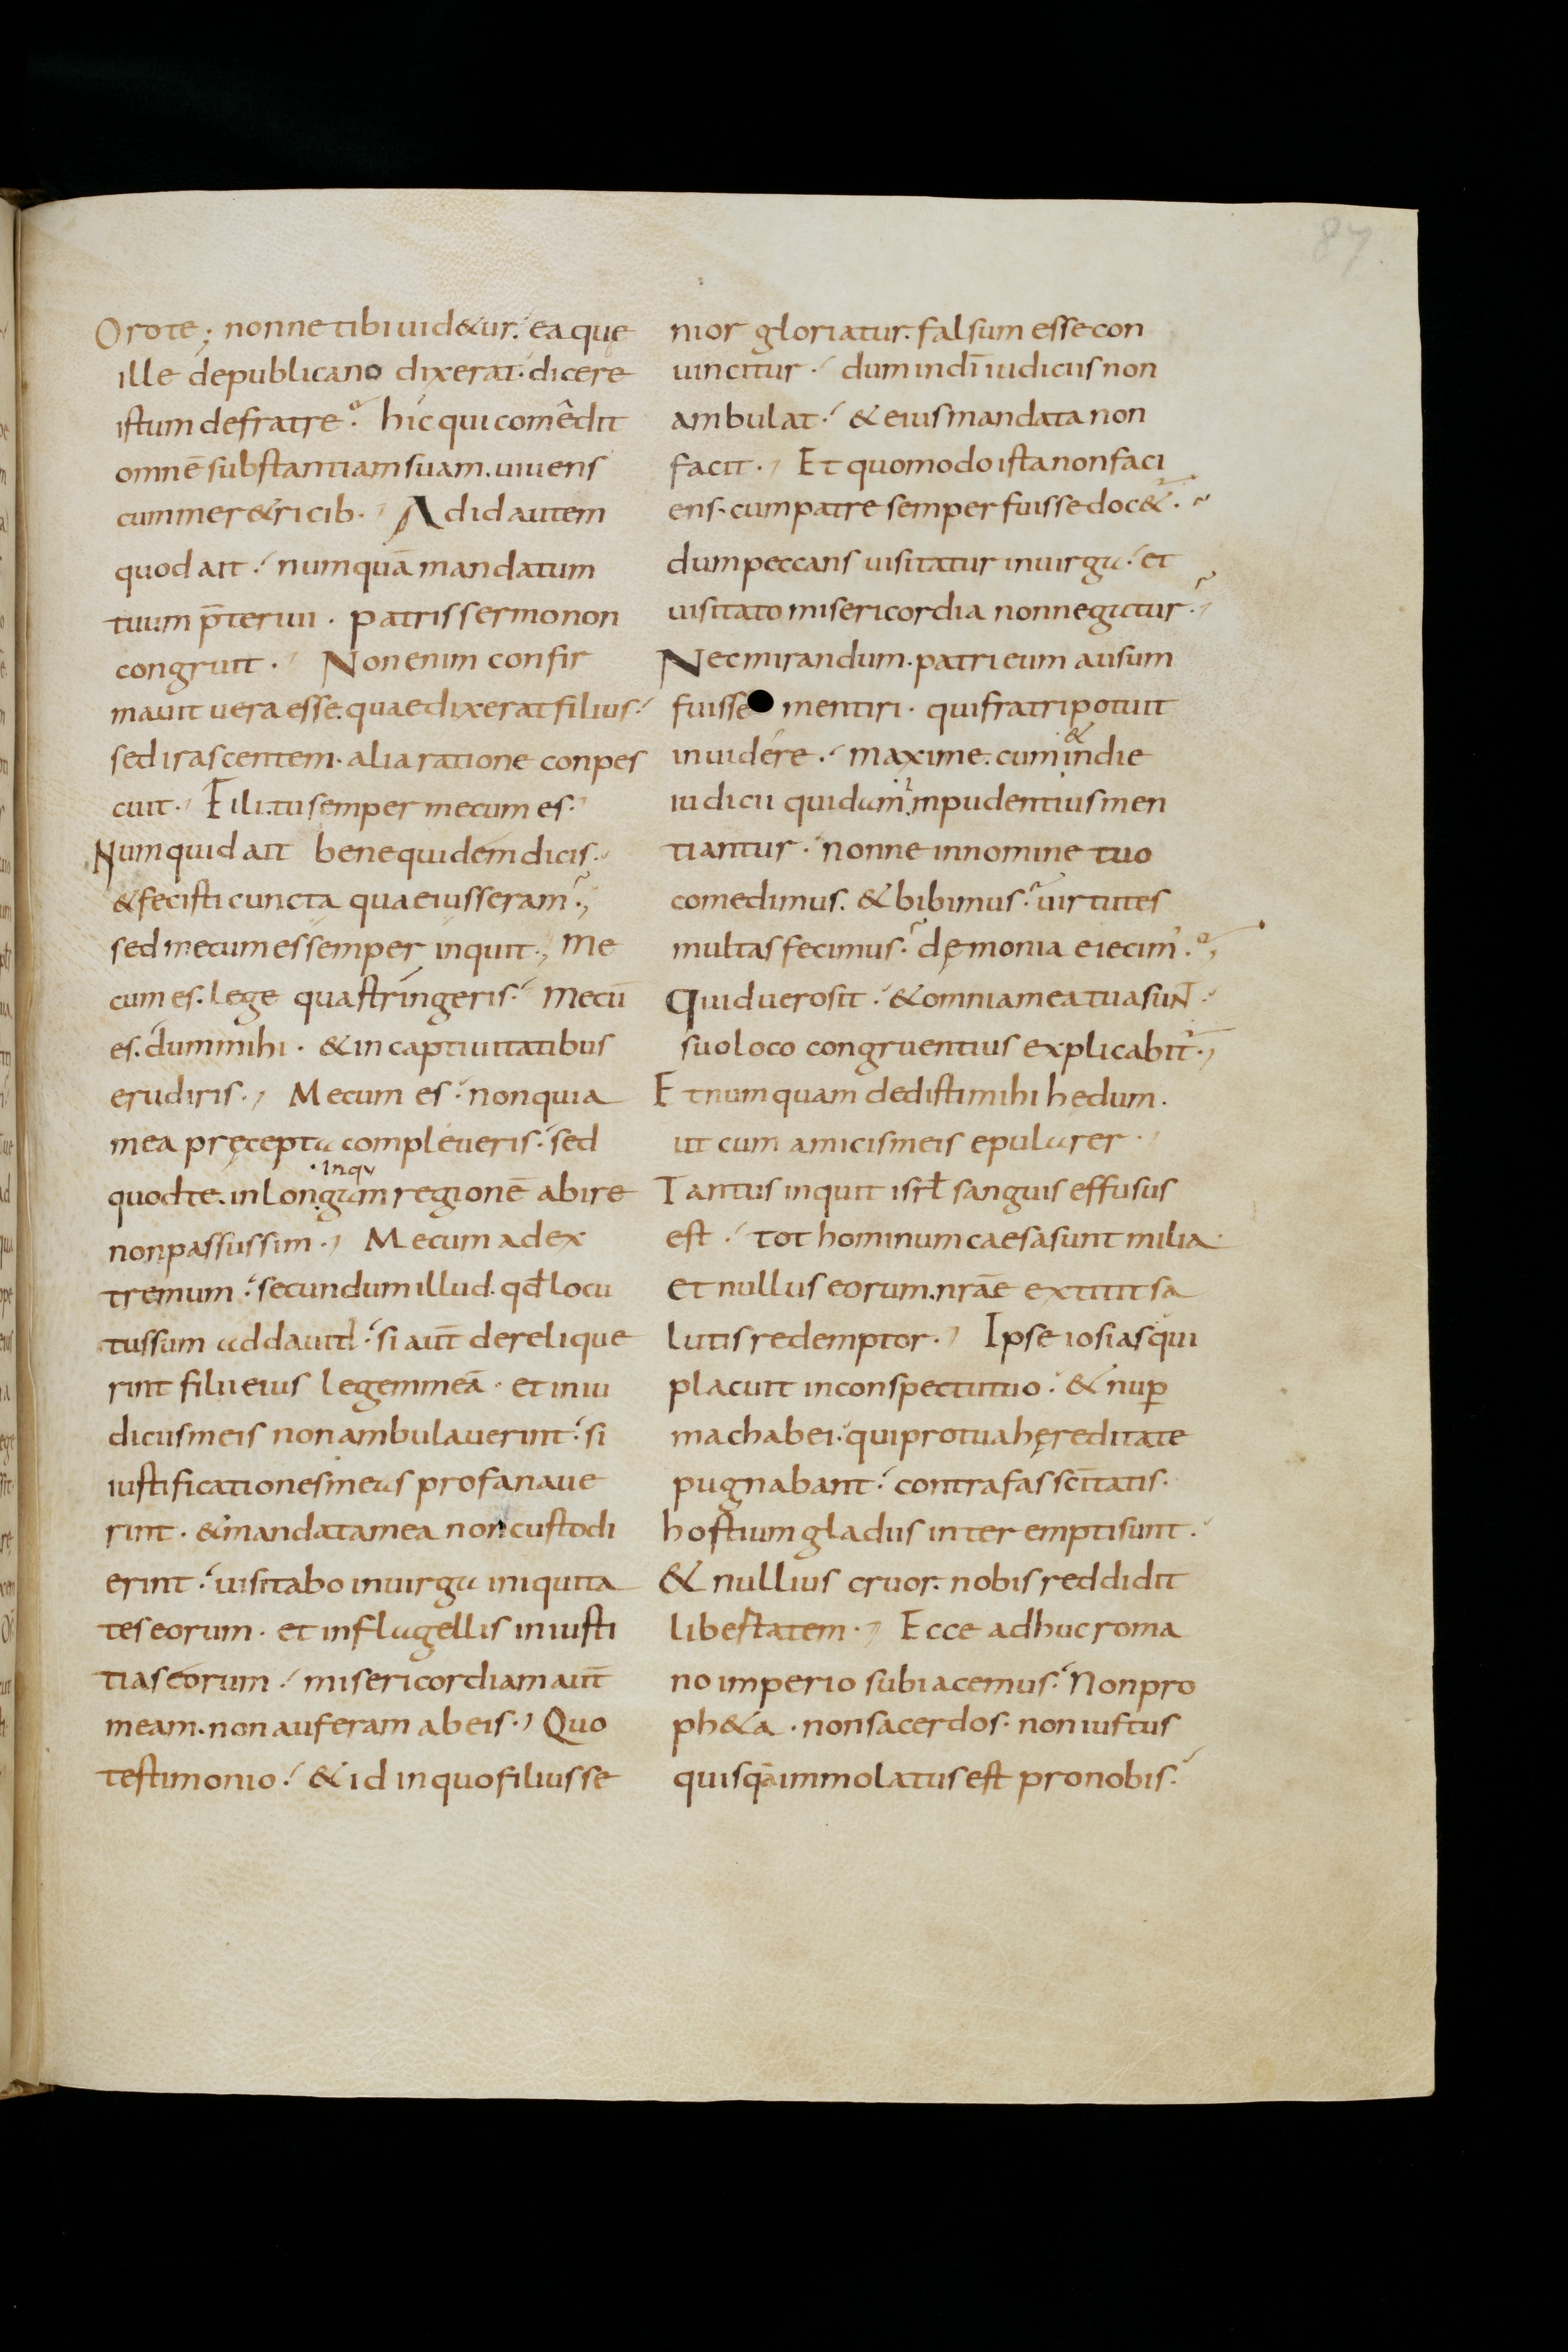 87.
Orote; nonne tibi uid&ur. ea quę
ille depublicano dixerat. dicere
istum defratre. hic qui comêdit
omnē substantiam suam. uiuens
cum mer&ricib. Ad id autem
quod ait. numquā mandatum
tuum p̄teriui. patris sermo non
congruit. Non enim confir
mauit uera esse. quae dixerat filius.
sed irascentem. alia ratione conpes
cuit. Fili. tu semper mecum es.
Numquid ait bene quidem dicis.
& fecisti cuncta quae iusseram.
sed mecum es semper inquit. me
cum es. lege qua stringeris. Mecū
es. dum mihi. & in captiuitatibus
erudiris. Mecum es. non quia
mea pręcepta compleueris. sed
inqu
quod te. in longum regionē abire
non passus sim. Mecum ad ex
tremum. secundum illud. qđ locu
tus sum ad dauid. si aut̄ derelique
rint filii eius legem meā. et in iu
diciis meis non ambulauerint. si
iustificationes meas profanaue
rint. & mandata mea non custodi
erint. uisitabo in uirga iniquita
tes eorum. et in flagellis iniusti
tias eorum. misericordiam aut̄
meam. non auferam ab eis. Quo
testimonio. & id in quo filius se
nior gloriatur. falsum esse con
uincitur. dum in dī iudiciis non
ambulat. & eius mandata non
facit. Et quomodo ista non faci
ens. cum patre semper fuisse doc&.
dum peccans uisitatur in uirga. et
uisitato misericordia non negatur.
Nec mirandum. patri eum ausum
fuisse mentiri. qui fratri potuit
&
inuidere. maxime. cum in die
iudicii quidam inpudentius men
tiantur. nonne in nomine tuo
comedimus. & bibimus. uirtutes
multas fecimus. dęmonia eiecim'.
Quid uero sit. & omnia mea tua sunt.
suo loco congruentius explicabit'.
Et numquam dedisti mihi hędum.
ut cum amicis meis epularer.
Tantus inquit isrł sanguis effusus
est. tot hominum caesa sunt milia
et nullus eorum. nrāe extitit sa
lutis redemptor. Ipse iosias qui
placuit in conspectu tuo. & nup̄
machabei. qui pro tua hęreditate
pugnabant. contra fas sc̄itatis.
hostium gladiis interempti sunt.
& nullius cruor. nobis reddidit
libertatem. Ecce adhuc roma
no imperio subiacemus. Non pro
ph&a. non sacerdos. non iustus
quisquā immolatus est pro nobis.